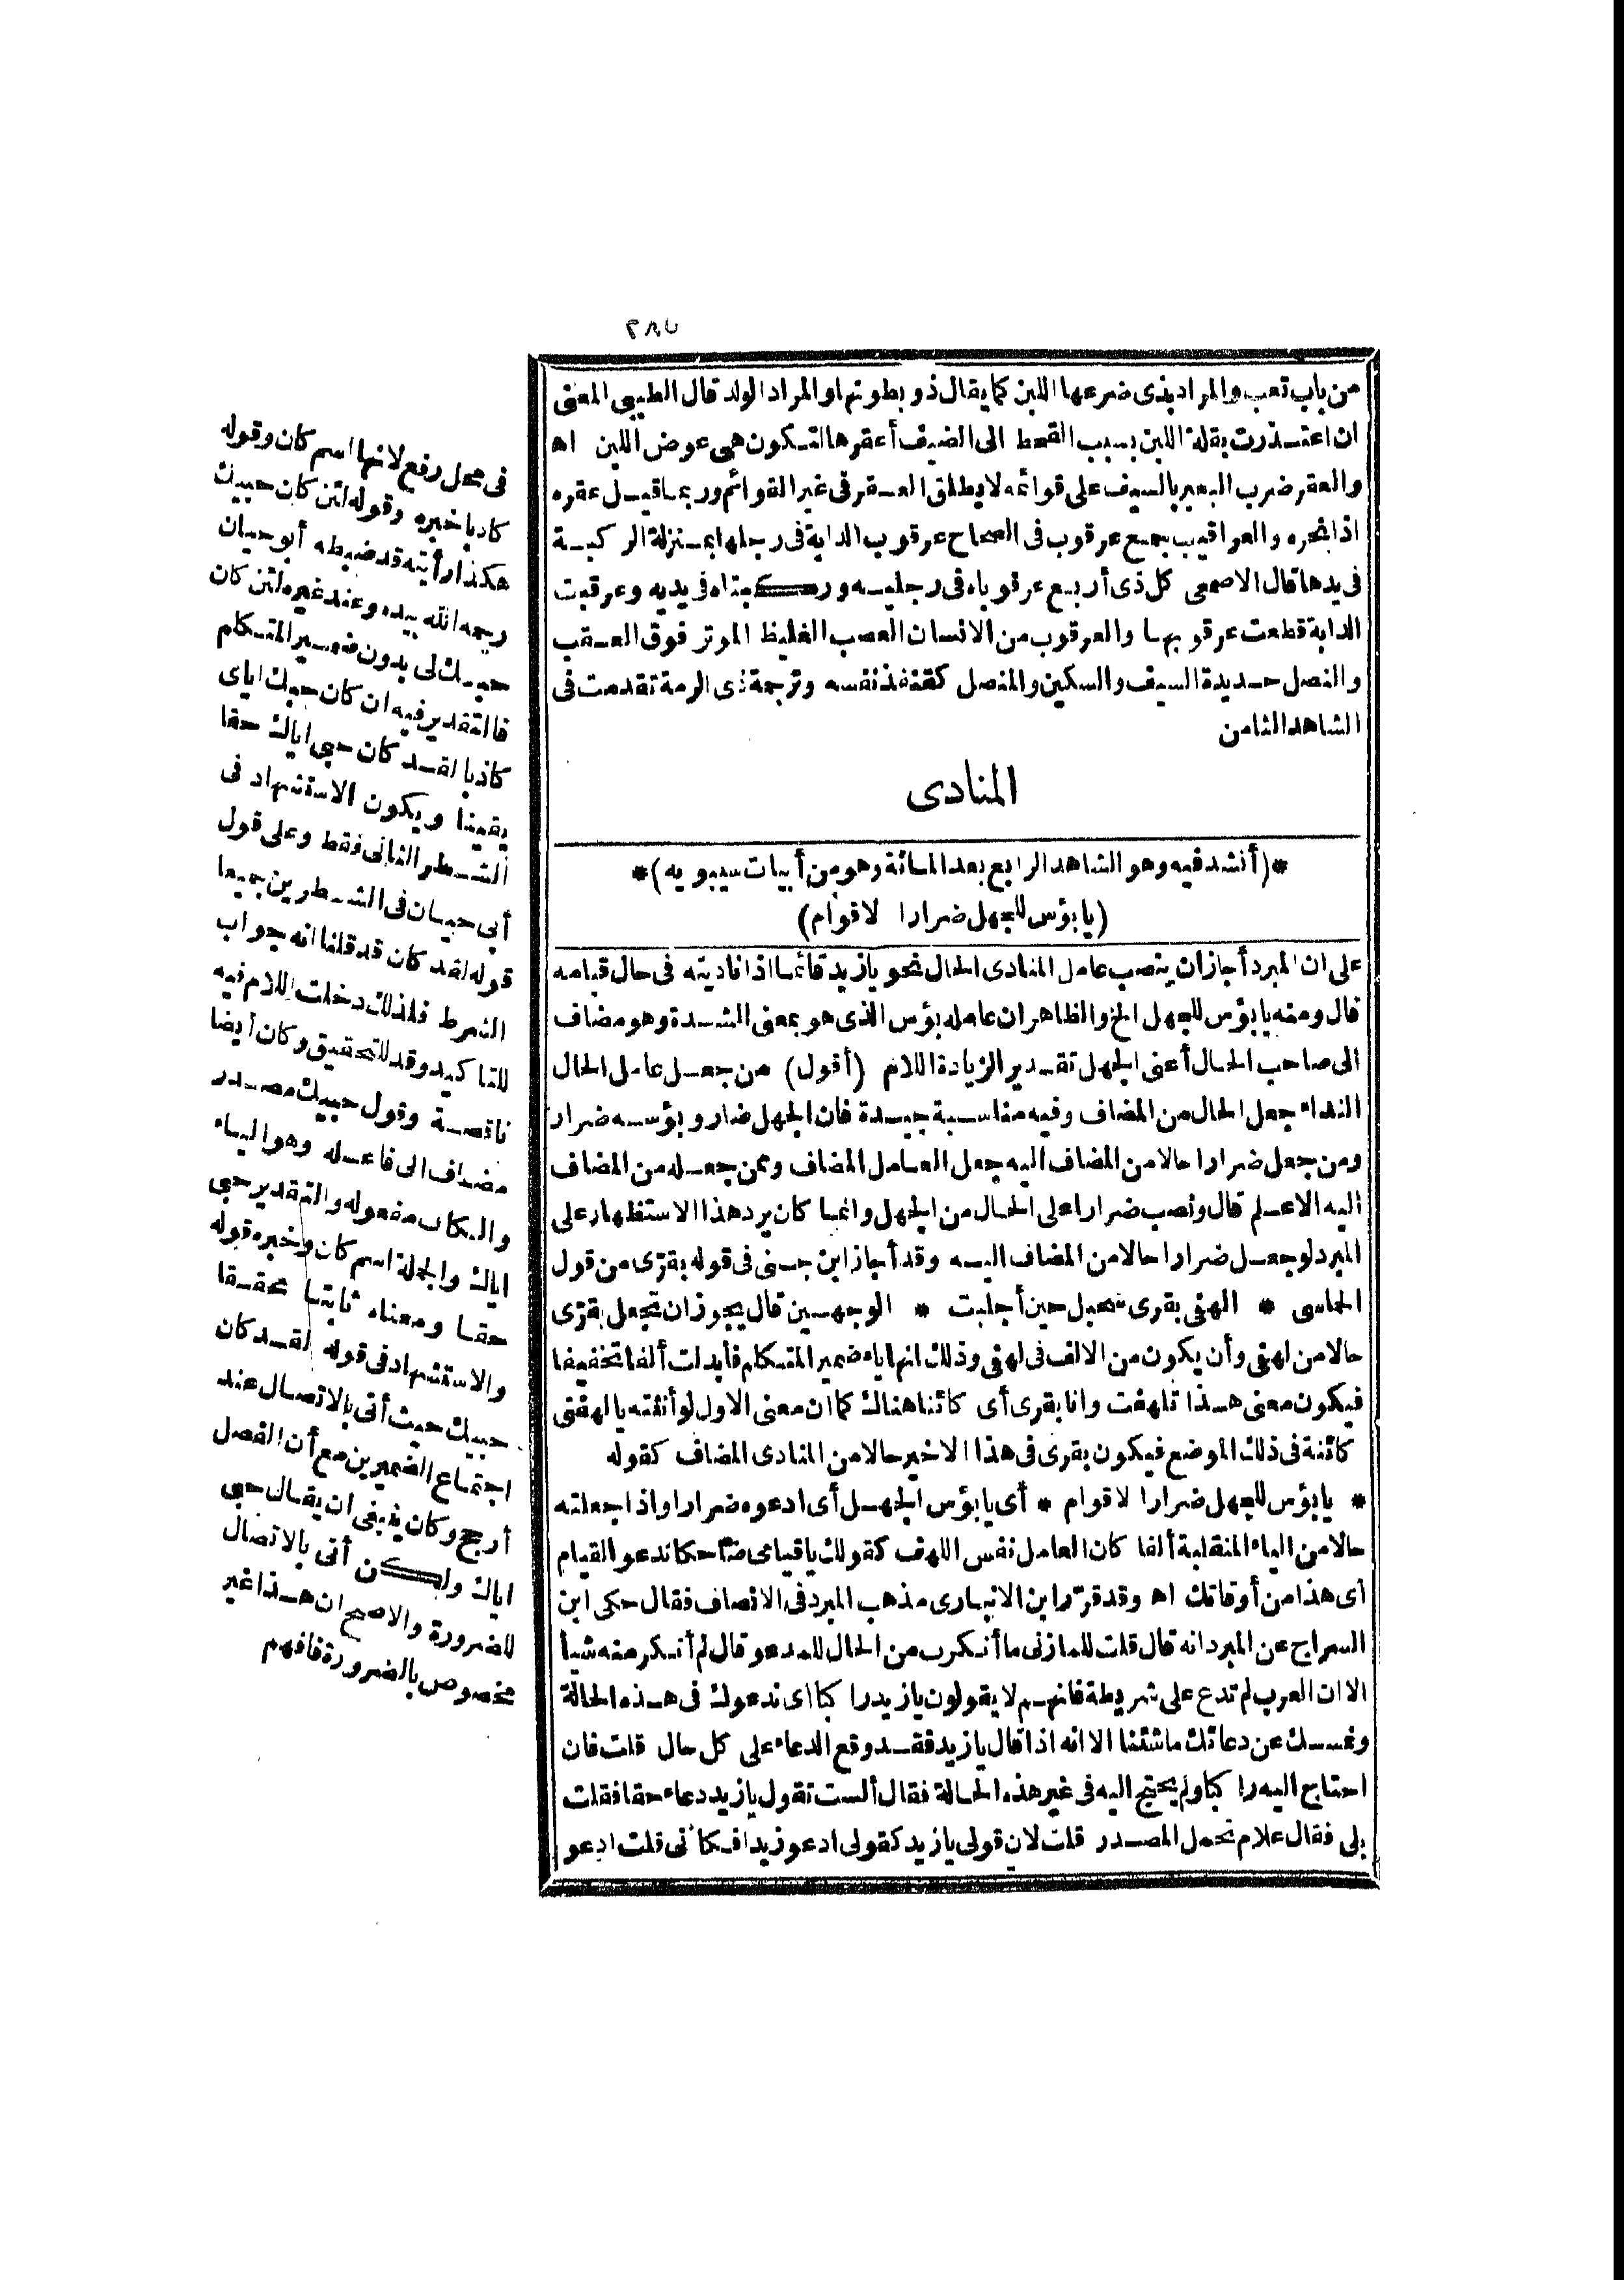 ٢٨٥
من باب تعب والمراد بذى ضرعها اللبن كما يقال ذو بطونها والمراد الولد قال الطيبى المعنى
ان اعتذرت بقلة اللبن بسبب القحط الى الضيف أعقرها لتكون هى عوض اللبن اه
والعقر ضرب البعير بالسيف على قوائمه لا يطلق العقر فى غير القوائم وربما قيل عقره
اذا نحره والعراقيب جمع عرقوب فى الصحاح عرقوب الدابة فى رجلها بمنزلة الركبة
فى يدها قال الاصمعى كل ذى أربع عرقوباه فى رجليه وركبتاه فى يديه وعرقبت
الدابة قطعت عرقوبها والعرقوب من الانسان العصب الغليظ الموتر فوق العقب
والنصل حديدة السيف والسكين والمنصل كقنفذ نفسه وترجمة ذى الرمة تقدمت فى
الشاهد الثامن
المنادى
*(أنشد فيه وهو الشاهد الرابع بعد المائة وهو من أبيات سيبويه)*
(يا بؤس للجهل ضرارا لاقوام)
على ان المبرد أجاز ان ينصب عامل المنادى الحال نحو يا زيد قائما اذا ناديته فى حال قيامه
قال ومنه يا بؤس للجهل الخ والظاهر ان عامله بؤس الذى هو بمعنى الشدة وهو مضاف
الى صاحب الحال أعنى الجهل تقدير الزيادة اللام (أقول) من جعل عامل الحال
النداء جعل الحال من المضاف وفيه مناسبة جيدة فان الجهل ضار وبؤسه ضرار
ومن جعل ضرارا حالا من المضاف اليه جعل العامل المضاف وممن جعله من المضاف
اليه الاعلم قال ونصب ضرارا على الحال من الجهل وانما كان يرد هذا الاستظهار على
المبرد لو جعل ضرارا حالا من المضاف اليه وقد أجاز ابن جنى فى قوله بقرّى من قول
الحماسى * الهفى بقرى سحبل حين أجلبت * الوجهين قال يجوز ان تجعل بقرّى
حالا من لهفى وأن يكون من الالف فى لهفى وذلك انها ياء ضمير المتكلم فأبدلت ألفا تخفيفا
فيكون معنى هذا تلهفت وانا بقرى أى كائنا هناك كما ان معنى الاول لو أنثته يا لهفتى
كائنة فى ذلك الموضع فيكون بقرى فى هذا الاخير حالا من المنادى المضاف كقوله
* يا بؤس للجهل ضرارا لاقوام * أى يا بؤس الجهل أى ادعوه ضرارا واذا جعلته
حالا من الياء المنقلبة ألفا كان العامل نفس اللهف كقولك يا قيامى ضاحكا ندعو القيام
أى هذا من أوقاتك اه وقد قرّر ابن الانبارى مذهب المبرد فى الانصاف فقال حكى ابن
السراج عن المبرد انه قال قلت للمازنى ما أنكرت من الحال للمدعو قال لم أنكر منه شيأ
الا ان العرب لم تدع على شريطة فانهم لا يقولون يا زيد راكبا اى ندعوك فى هذه الحالة
ونمسك عن دعائك ماشئنا الا انه اذا قال يا زيد فقد وقع الدعاء على كل حال قلت فان
احتاج اليه راكبا ولم يحتج اليه فى غير هذه الحالة فقال ألست تقول يا زيد دعاء حقا فقلت
بلى فقال علام تحمل المصدر قلت لان قولى يا زيد كقولى ادعو زيدا فكأنى قلت ادعو
فى محل رفع لانها اسم كان وقوله
كاذبا خبره وقوله لئن كان حبيك
هكذا رأيته قد ضبطه أبو حيان
رحمه الله بيده وعند غيره لئن كان
حبك لى بدون ضمير المتكلم
فالتقدير فيه ان كان حبك اياى
كاذبا لقد كان حبى اياك حقا
يقينا ويكون الاستشهاد فى
الشطر الثانى فقط وعلى قول
أبى حيان فى الشطرين جميعا
قوله لقد كان قد قلنا انه جواب
الشرط فلذلك دخلت اللام فيه
للتاكيد وقد للتحقيق وكان أيضا
ناقصة وقول حبيك مصدر
مضاف الى فاعله وهو الياء
والكاف مفعوله والتقدير حبى
اياك والجملة اسم كان وخبره قوله
حقا ومعناه ثابتا محققا
والاستشهاد فى قوله لقد كان
حبيك حيث أتى بالاتصال عند
اجتماع الضميرين مع أن الفصل
أرجح وكان ينبغى ان يقال حبى
اياك ولكن أتى بالاتصال
للضرورة والاصح ان هذا غير
مخصوص بالضرورة فافهم